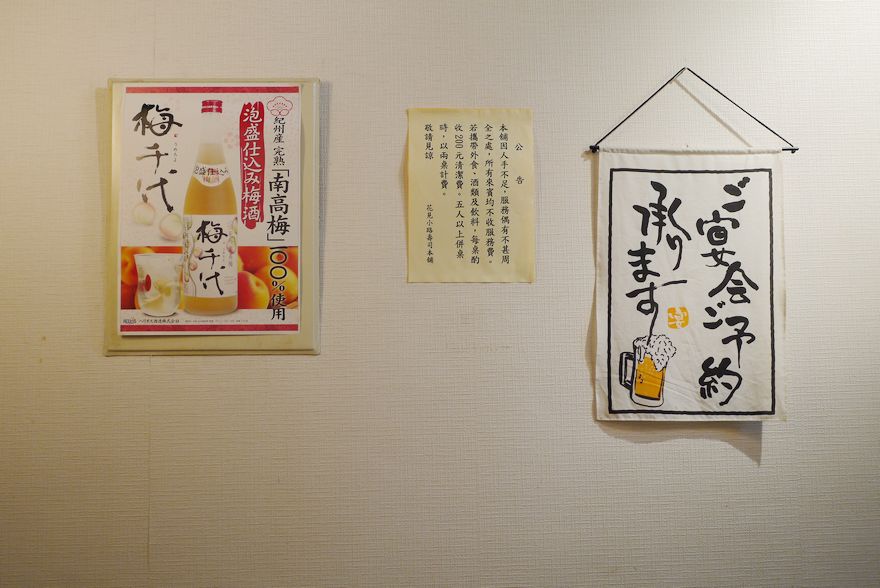 梅千代
うめちよ
紀州産 完熟「南高梅」一〇〇%使用
泡盛仕込み梅酒
泡盛仕込み
梅酒
梅千代
公告
本舖因人手不足,服務偶有不甚周
全之處,所有來賓均不收服務費。
若攜帶外食、酒類及飲料,每桌酌
收200元清潔費。五人以上併桌
時,以兩桌計費。
敬請見諒
花見小路壽司本舖
ご宴会ご予約
承ります